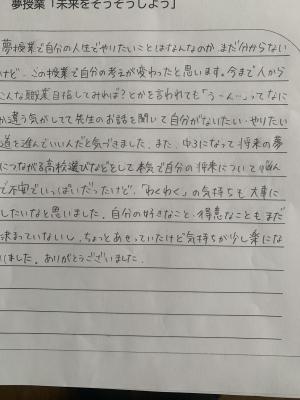 夢授業「未来をそうぞうしよう」
夢授業で自分の人生でやりたいことはなんなのか、まだ分からない
けど、この授業で自分の考えが変わったと思います。今まで人から
こんな職業目指してみれば？とかを言われても「うーん…」ってなに
か違う気がしてて先生のお話を聞いて自分がないたい・やりたい
道を進んでいいんだと気づきました。また、中3になって将来の夢
につながる高校選びなどをして本気で自分の将来について悩ん
で不安でいっぱいだったけど、「わくわく」の気持ちも大事に
したいなと思いました。自分の好きなこと・得意なこともまだ
決まっていないし、ちょっとあせっていたけど気持ちが少し楽にな
りました。ありがとうございました。